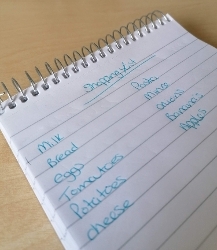 Shopping List
Milk
Bread
eggs
Tomatoes
Potatoes
cheese
Pasta
Onions
Bananas
Apples